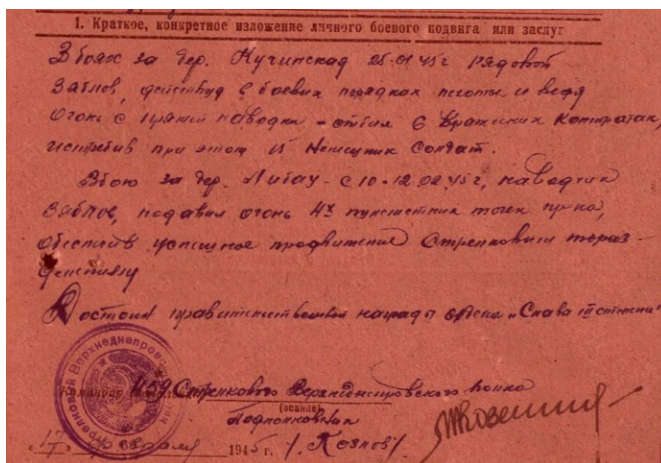 1. Краткое, конкретное изложение личного боевого подвига или заслуг
В боях за дер. Кучинская 25.01.45г рядовой
Зяблов, действуя в боевых порядках пехоты и ведя
огонь с прямой наводки – отбил 6 вражеских контратак,
истребив при этом 15 немецких солдат.
В бою за дер. Либау – с 10-12.02.45г, наводчик
Зяблов, подавил огонь 4х пулеметных точек пр-ка,
обеспечив успешное продвижение стрелковым подраз-
делениям
Достоин правительственной награды ордена „Слава III степени"
Командир 1159 Стрелкового Верхнеднепровского полка
(звание)
Подполковник
17 февраля 1945 г. /. Козлов /.